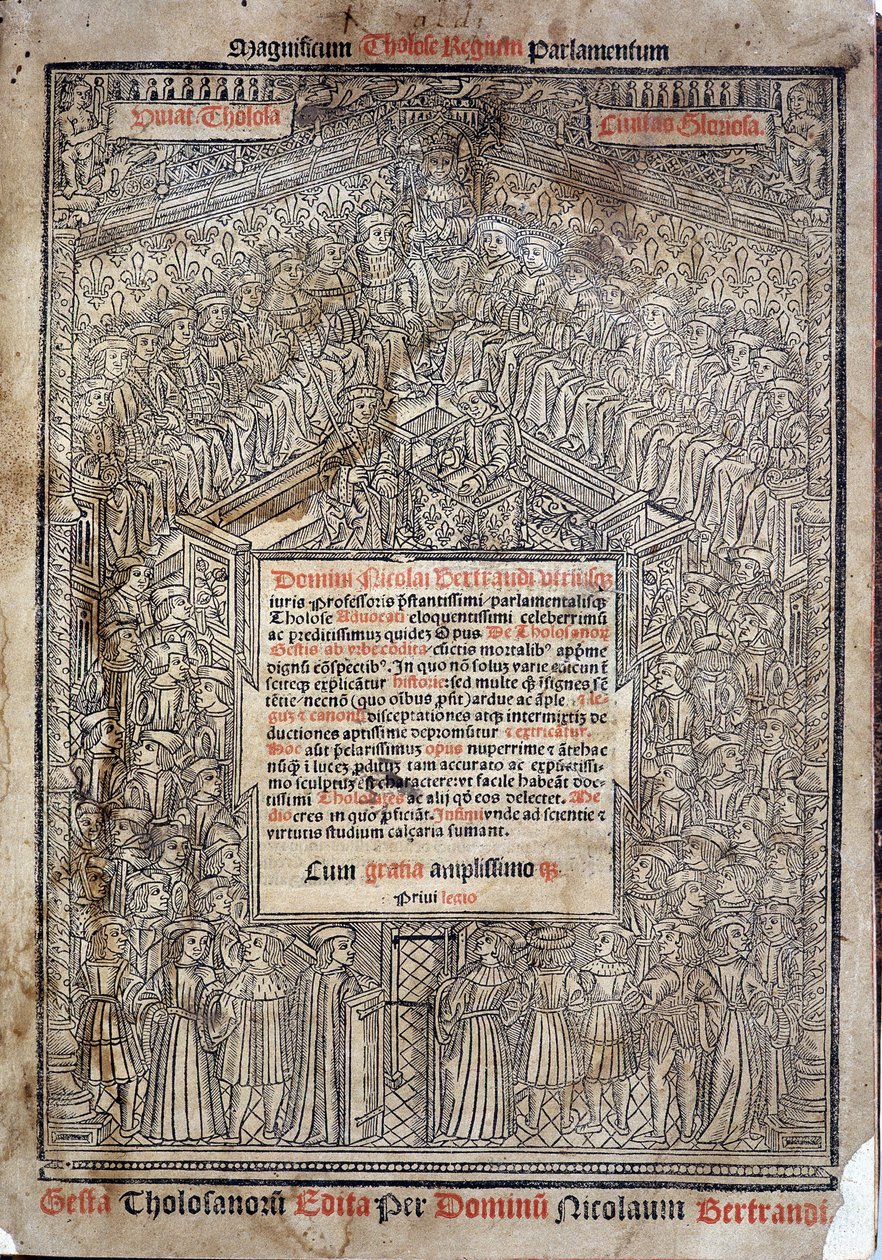 Magnificum Tholose Regium Parlamentum
Viuat Tholosa
Ciuitas Gloriosa.
Domini Nicolai Bertrandi vtriusqꝫ
iuris Professoris p̃stantissimi/parlamentalisqꝫ
Tholose Aduocati eloquentissimi celeberrimũ
ac preditissimuꝫ quideꝫ Opus. De Tholosanoꝝ
Gestis ab vrbe cõdita/cũctis mortalibꝰ apprime
dignũ cõspectibꝰ. In quo nõ soluꝫ varie
sciteqꝫ explicãtur historie: sed multe qꝫ ĩsignes sẽ
tẽtie/necnõ (quo oĩbus ꝓsit) ardue ac ãple
⁊ canonũ disceptationes atqꝫ intermixtis de
ductiones aptissime depromũtur ⁊ extricãtur.
Hoc aũt p̃clarissimuꝫ opus nuperrime ⁊ ãtehac
nũqꝫ ĩ luceꝫ ꝓditũ tam accurato ac expuitissi
mo sculptuꝫ est charactere: vt facile habeãt doc
tissimi Tholosates ac alij qđ eos delectet. Me
diocres in quo ꝓficiãt. Infimi vnde ad scientie ⁊
virtutis studium calcaria sumant.
Cum gratia amplissimo qꝫ
Priuilegio
Gesta Tholosanorũ Edita Per Dominũ Nicolaum Bertrandi.